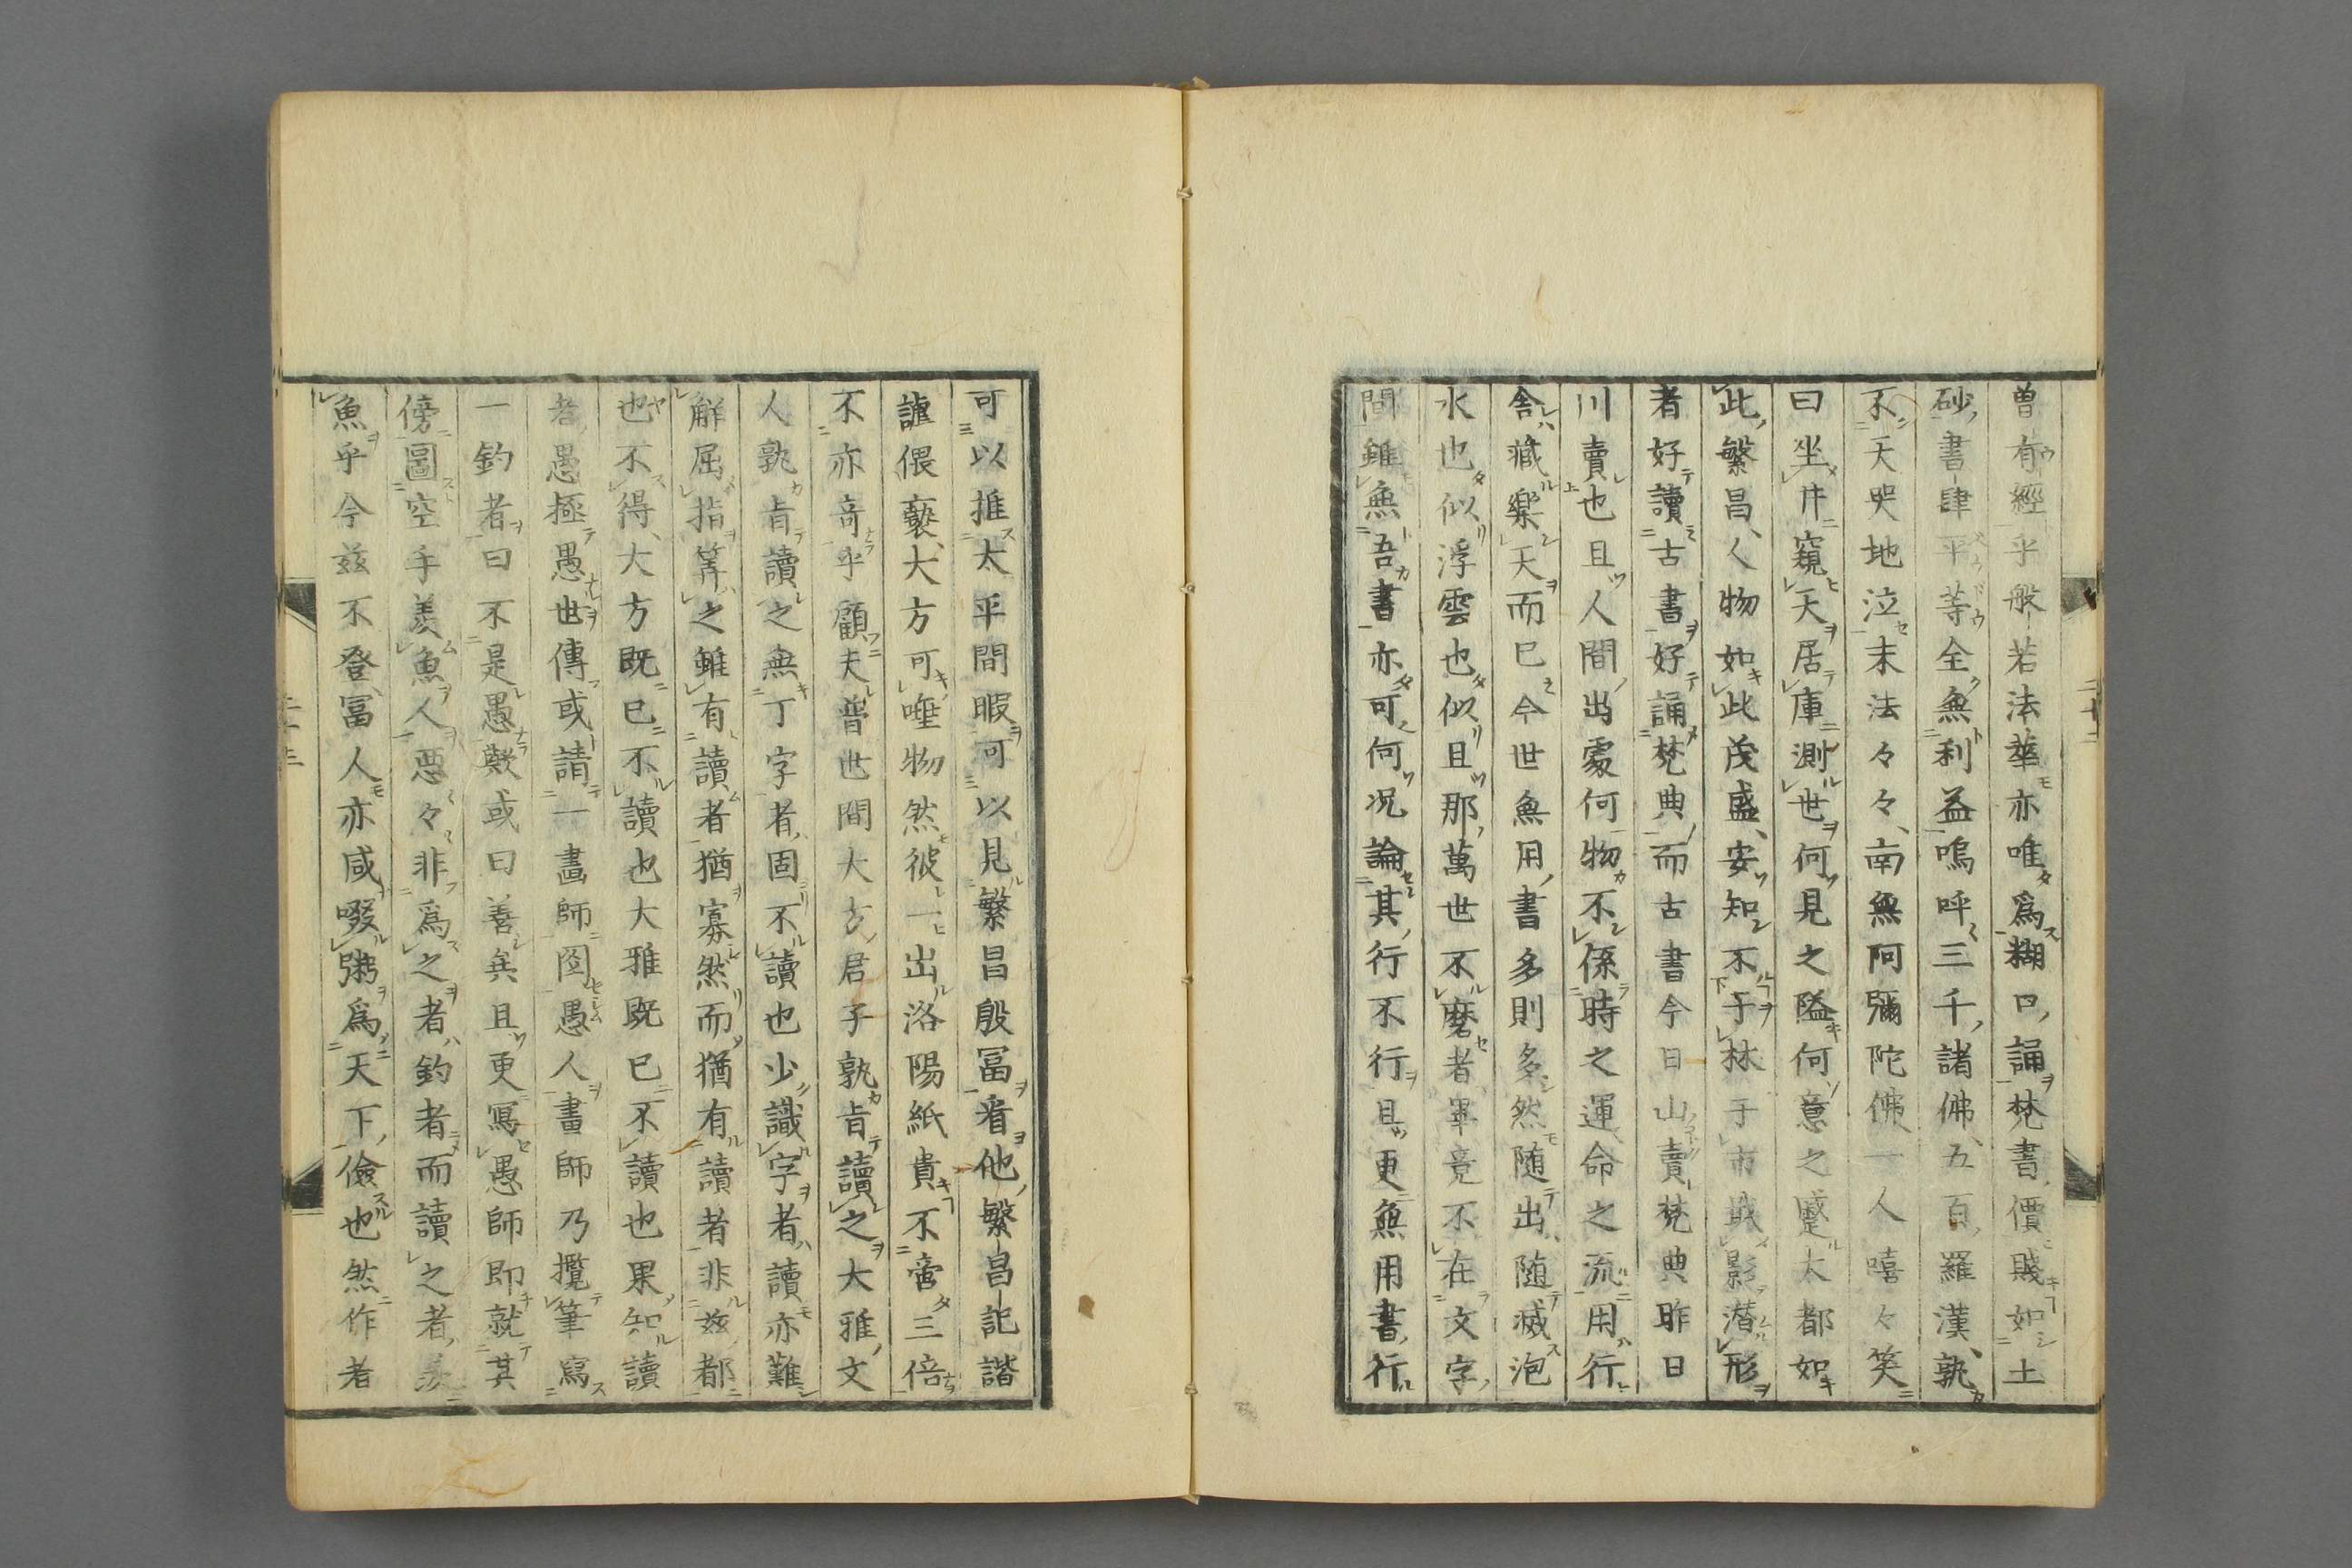 曽有經乎般若法華亦唯爲糊口誦梵書價賤如土
砂書肆平等全無利益嗚呼三千諸佛五百羅漢孰
不天哭地泣末法々々南無阿彌陀佛一人嘻々笑
曰坐井窺天居庫測世何見之隘何意之蹙大都如
此繁昌人物如此茂盛安知不于林于市戢影潜形
者好讀古書好誦梵典而古書今日山賣梵典昨日
川賣也且人間出處何物不係時之運命之流用行
舎藏樂天而已今世無用書多則多然随出随滅泡
水也似浮雲也似且那萬世不磨者畢竟不在文字
間雖無吾書亦可何况論其行不行且更無用書行
可以推太平間暇可以見繁昌殷冨看他繁昌記諧
謔偎褻大方可唾物然彼一出洛陽紙貴不啻三倍
不亦奇乎顧夫普世間大方君子孰肯讀之大雅文
人孰肯讀之無丁字者固不讀也少識字者讀亦難
觧屈指筭之雖有讀者猶寡然而猶有讀者非玆都
也不得大方既已不讀也大雅既已不讀也果知讀
者愚極愚世傳或請一畵師圖愚人畵師乃攬筆寫
一釣者曰不是愚歟或曰善矣且更寫愚師即就其
傍圖空手羨魚人惡々非爲之者釣者而讀之者羨
魚乎今玆不登冨人亦咸啜粥爲天下儉也然作者
二十三